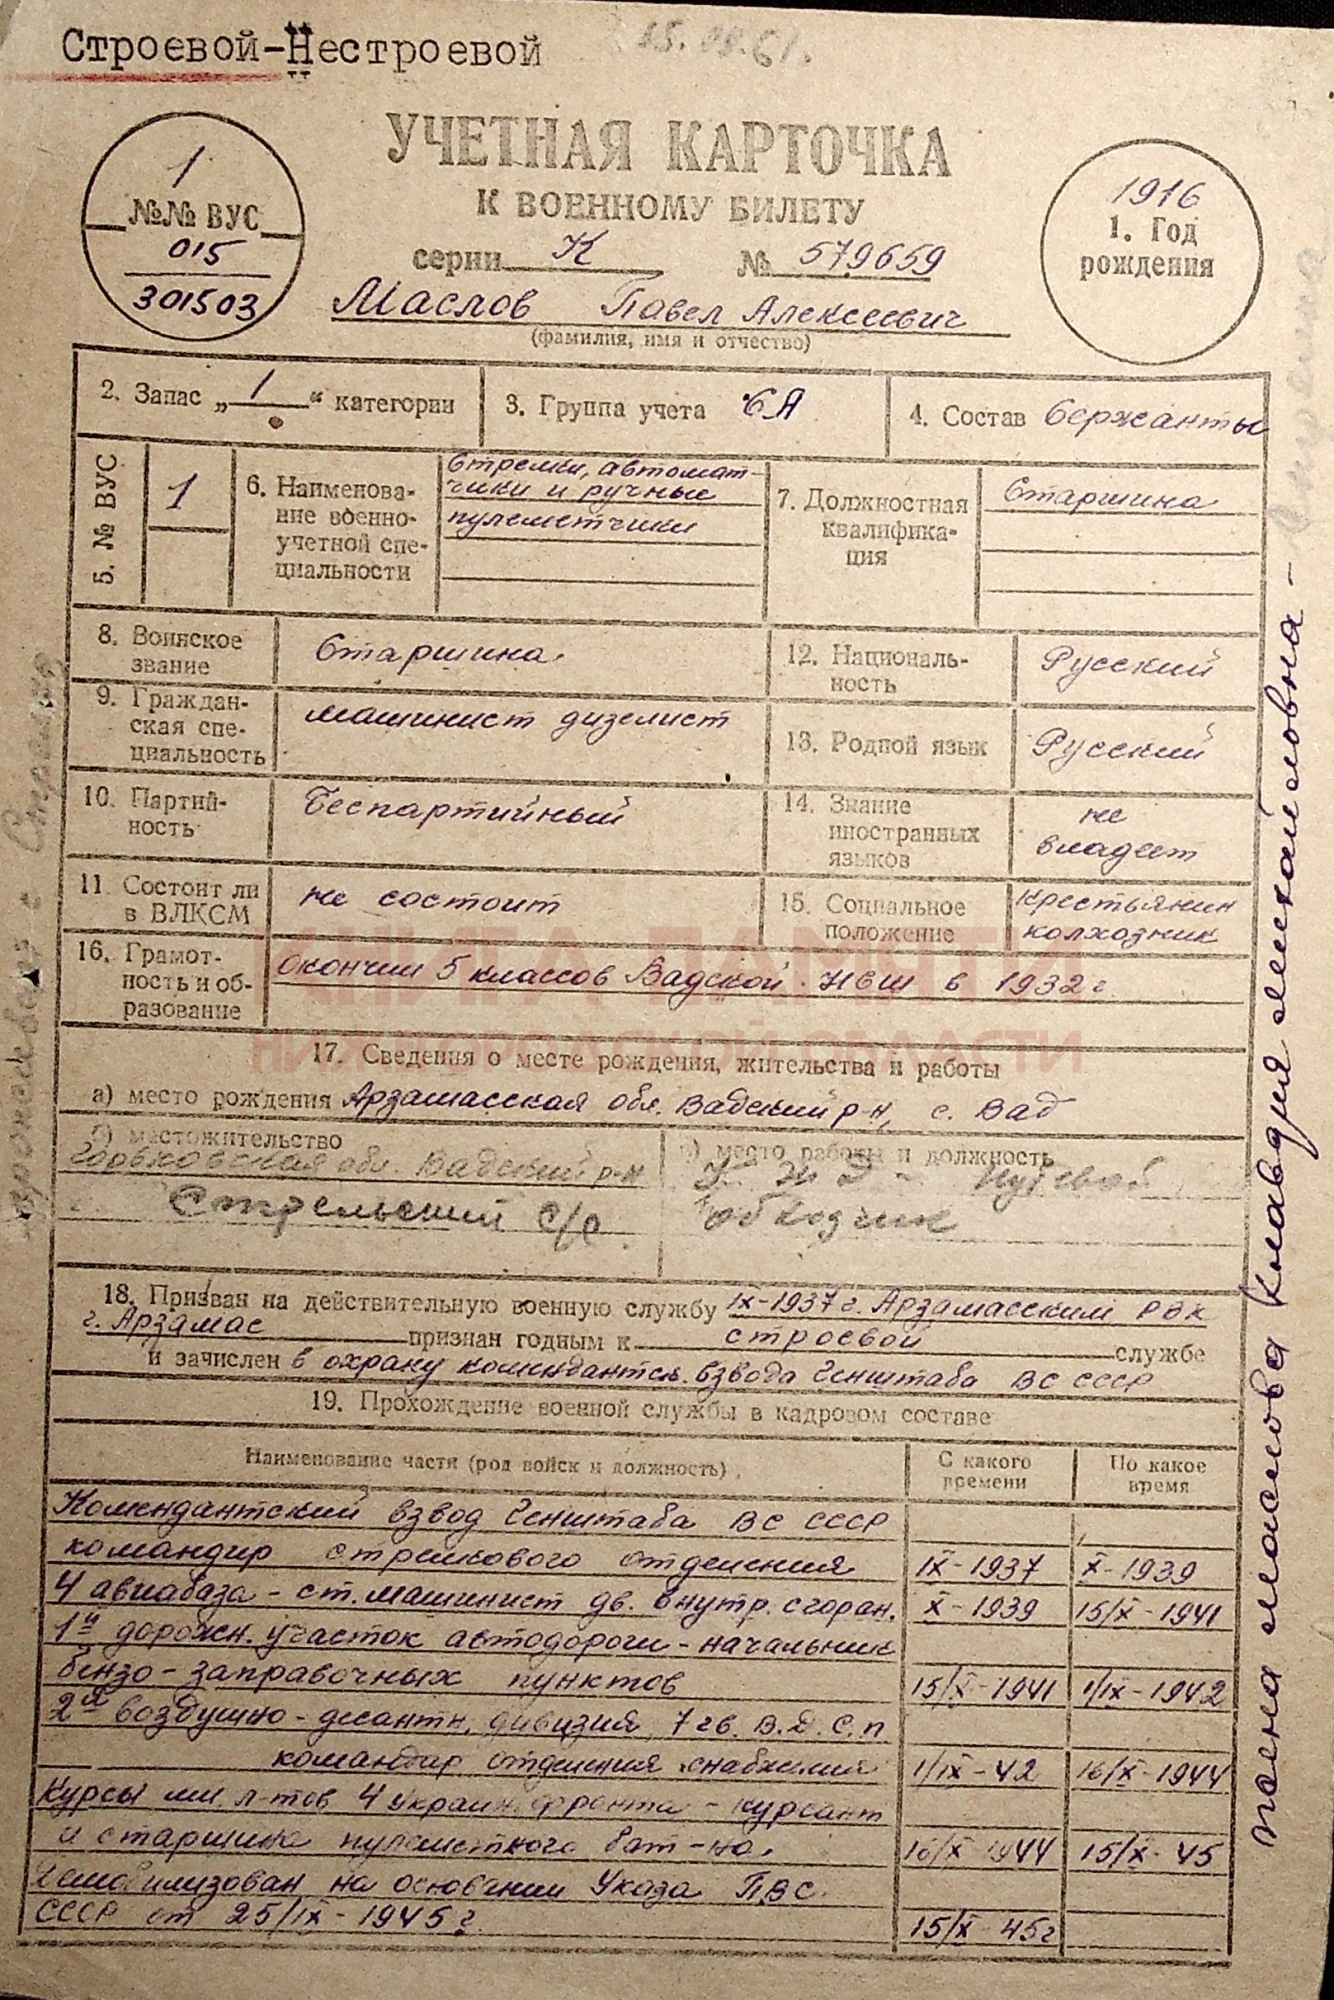 Строевой-Нестроевой
15.08.61.
УЧЕТНАЯ КАРТОЧКА
К ВОЕННОМУ БИЛЕТУ
серии К № 579659
1
№№ ВУС
015
301503
1916
1. Год
рождения
Маслов Павел Алексеевич
(фамилия, имя и отчество)
2. Запас „1“ категории
3. Группа учета СА
4. Состав Сержанты
5. № ВУС
1
6. Наименова-
ние военно-
учетной спе-
циальности
Стрелки, автомат-
чики и ручные
пулеметчики
7. Должностная
квалифика-
ция
Старшина
8. Воинское
звание
Старшина
12. Националь-
ность
Русский
9. Граждан-
ская спе-
циальность
машинист дизелист
13. Родной язык
Русский
10. Партий-
ность
Беспартийный
14. Знание
иностранных
языков
не
владеет
11. Состоит ли
в ВЛКСМ
не состоит
15. Социальное
положение
крестьянин
колхозник
16. Грамот-
ность и об-
разование
Окончил 5 классов Вадской НСШ в 1932 г.
КНИГА ПАМЯТИ
НИЖЕГОРОДСКОЙ ОБЛАСТИ
17. Сведения о месте рождения, жительства и работы
а) место рождения Арзамасская обл. Вадский р-н, с. Вад
б) местожительство
Горьковская обл. Вадский р-н
Стрельский с/с
в) место работы и должность
Путевой
обходчик
18. Призван на действительную военную службу IX-1937 г. Арзамасским РВК
г. Арзамас признан годным к строевой службе
и зачислен в охрану комендантск. взвода Генштаба ВС СССР
19. Прохождение военной службы в кадровом составе
Наименование части (род войск и должность)
С какого
времени
По какое
время
Комендантский взвод Генштаба ВС СССР
командир стрелкового отделения IX-1937 X-1939
4 авиабаза - ст. машинист дв. внутр. сгоран. X-1939 15/X-1941
1й дорожн. участок автодороги - начальник
бензо-заправочных пунктов 15/X-1941 1/IX-1942
2я воздушно-десантн. дивизия, 7 гв. В.Д.С.П
командир отделения снабжения 1/IX-42 16/X-1944
Курсы мл. л-тов 4 Украин. фронта - курсант
и старшина пулеметного бат-на. 16/X 1944 15/X-45
Демобилизован на основании Указа ПВС
СССР от 25/IX-1945 г. 15/X-45г
жена Маслова Клавдия Михайловна -